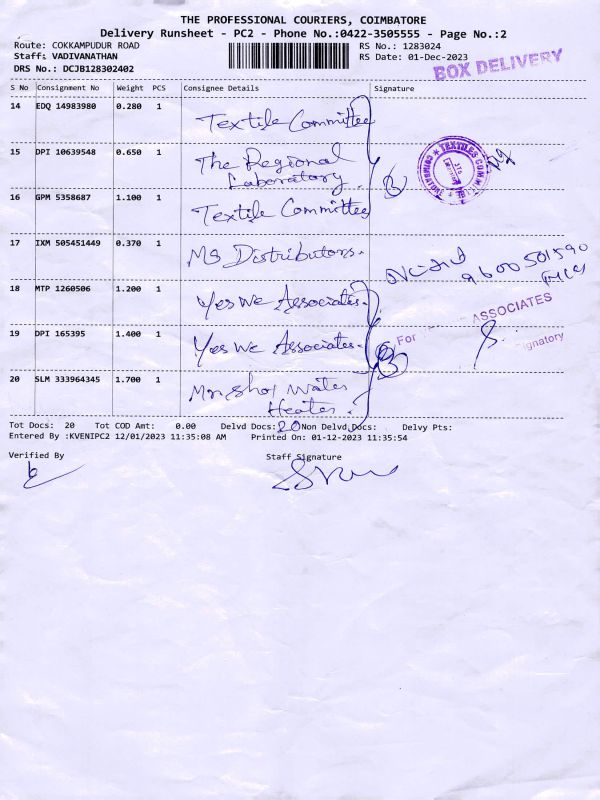 THE PROFESSIONAL COURIERS, COIMBATORE
Delivery Runsheet - PC2 - Phone No.:0422-3505555 - Page No.:2
Route: COKKAMPUDUR ROAD RS No.: 1283024
Staff: VADIVANATHAN RS Date: 01-Dec-2023
DRS No.: DCJB128302402
BOX DELIVERY
S No Consignment No Weight PCS Consignee Details Signature
14 EDQ 14983980 0.280 1 Textile Committee
15 DPI 10639548 0.650 1 The Regional
Laboratory.
TEXTILES COMMITTEE
16 GPM 5358687 1.100 1 Textile Committee
17 IXM 505451449 0.370 1 MS Distributors.
9600501590
18 MTP 1260506 1.200 1 Yes We Associates.
For ASSOCIATES
19 DPI 165395 1.400 1 Yes We Associates.
Signatory
20 SLM 333964345 1.700 1 Water
Heater.
Tot Docs: 20 Tot COD Amt: 0.00 Delvd Docs: 20 Non Delvd Docs: Delvy Pts:
Entered By :KVENIPC2 12/01/2023 11:35:08 AM Printed On: 01-12-2023 11:35:54
Verified By Staff Signature